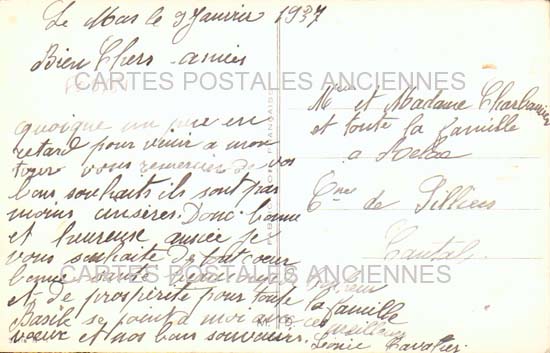 Le Mas le 9 Janvier 1937
Bien Chers amies
CARTES POSTALES ANCIENNES
quoique un peu en
retard pour venir a mon
tour vous remercier de vos
bons souhaits ils sont pas
moins sincères. Donc bonne
et heureuse année je
vous souhaite de tout cœur
bonne santé
et de prospérité pour toute la famille
Basile se joint a moi
vœux et nos bons souvenirs.
Léonie
Mr et Madame Charbonnier
et toute la famille
a
Cne de
Cantal
CARTES POSTALES ANCIENNES